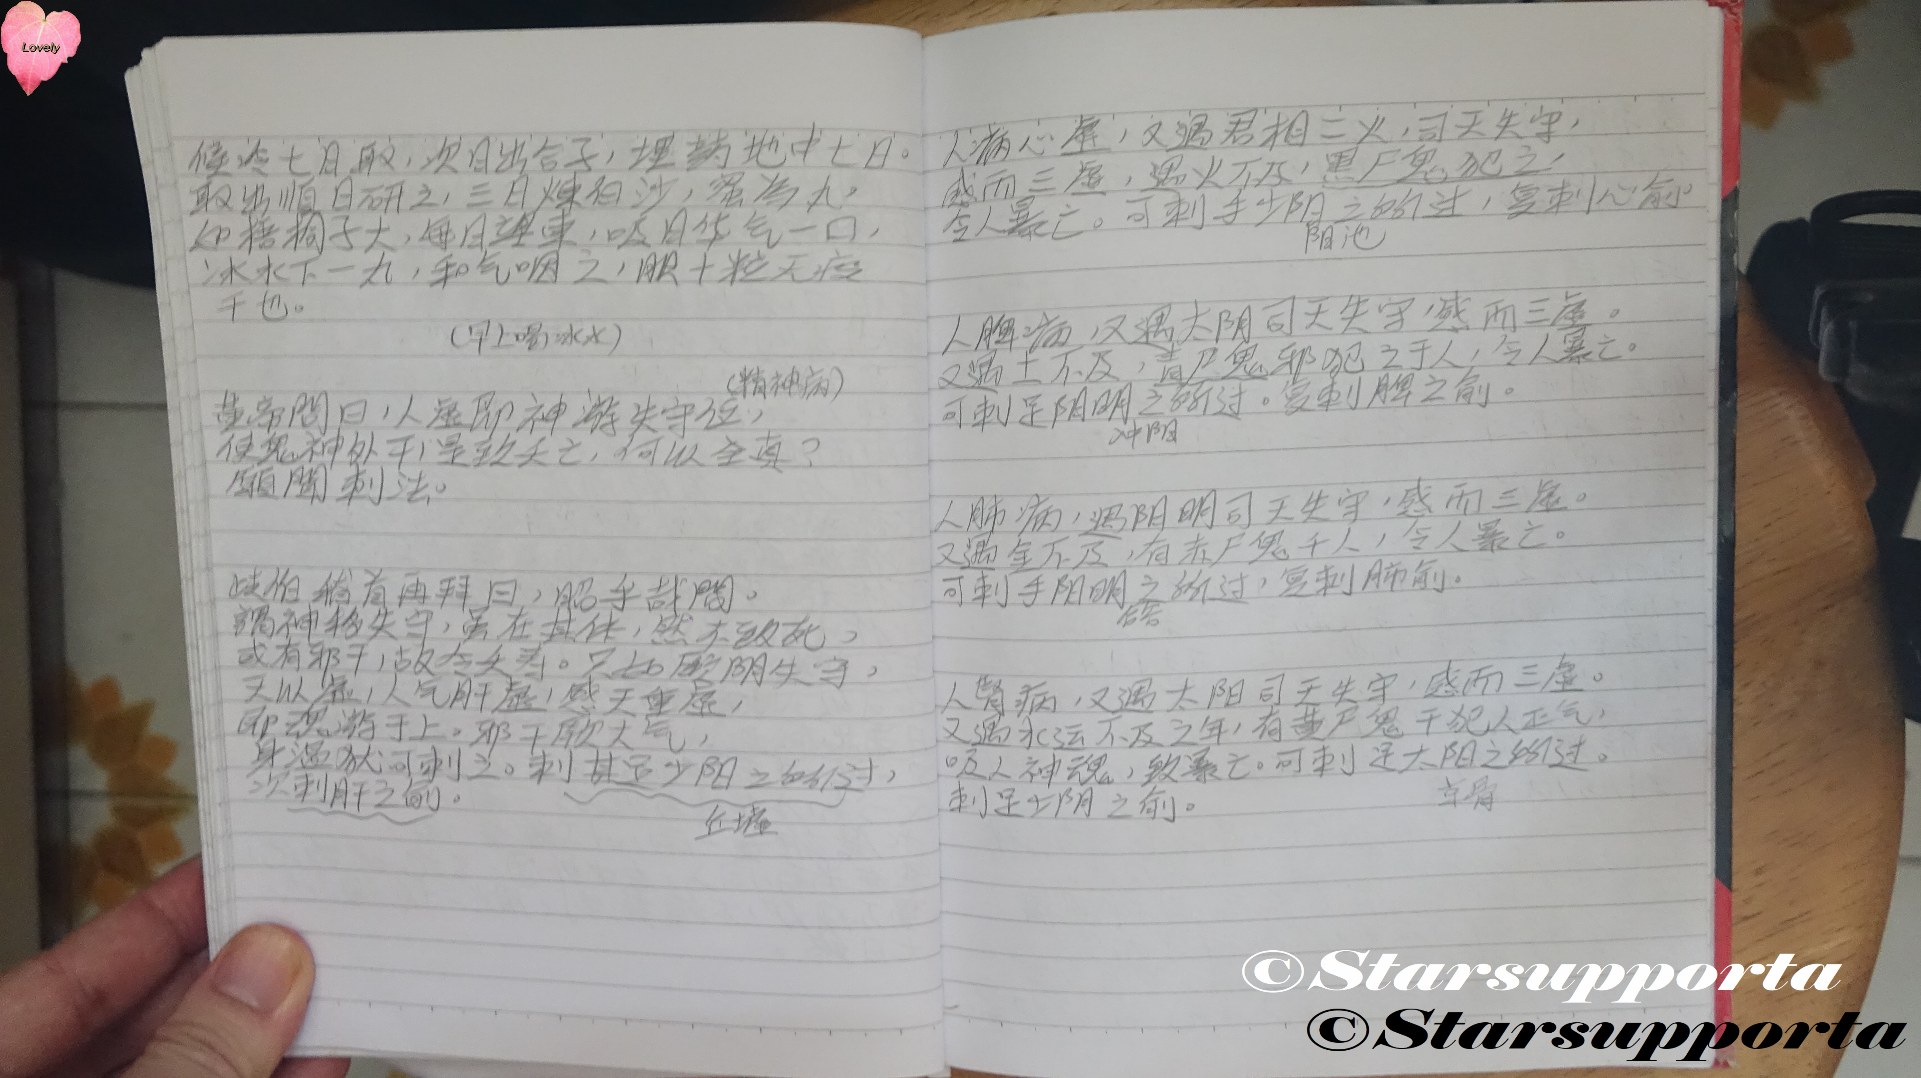 Lovely
候冷七日取,次日出合子,埋药地中七日。
取出顺日研之,三日炼白沙,蜜为丸。
如梧桐子大,每日望東,吸日华气一口,
冰水下一丸,和气咽之,服十粒无疫
干也。
(早上喝冰水)
(精神病)
黄帝問曰,人虚即神游失守位,
使鬼神外干,是致夭亡,何以全真?
願聞刺法。
岐伯稽首再拜曰,昭乎哉問。
謂神移失守,虽在其体,然不致死,
或有邪干,故令夭寿。只如厥阴失守,
天以虚,人气肝虚,感天重虚,
即魂游于上。邪干厥大气,
身温犹可刺之。刺其足少阳之所过,
次刺肝之俞。
丘墟
人病心虚,又遇君相二火,司天失守,
感而三虚,遇火不及,黑尸鬼犯之,
令人暴亡。可刺手少阳之所过,复刺心俞。
阳池
人脾病,又遇太阴司天失守,感而三虚。
又遇土不及,青尸鬼邪犯之于人,令人暴亡。
可刺足阳明之所过。复刺脾之俞。
冲阳
人肺病,遇阳明司天失守,感而三虚。
又遇金不及,有赤尸鬼干人,令人暴亡。
可刺手阳明之所过,复刺肺俞。
人腎病,又遇太阳司天失守,感而三虚。
又遇水运不及之年,有黄尸鬼干犯人正气,
吸人神魂,致暴亡。可刺足太阳之所过。
京骨
刺足少阳之俞。
©Starsupporta
©Starsupporta